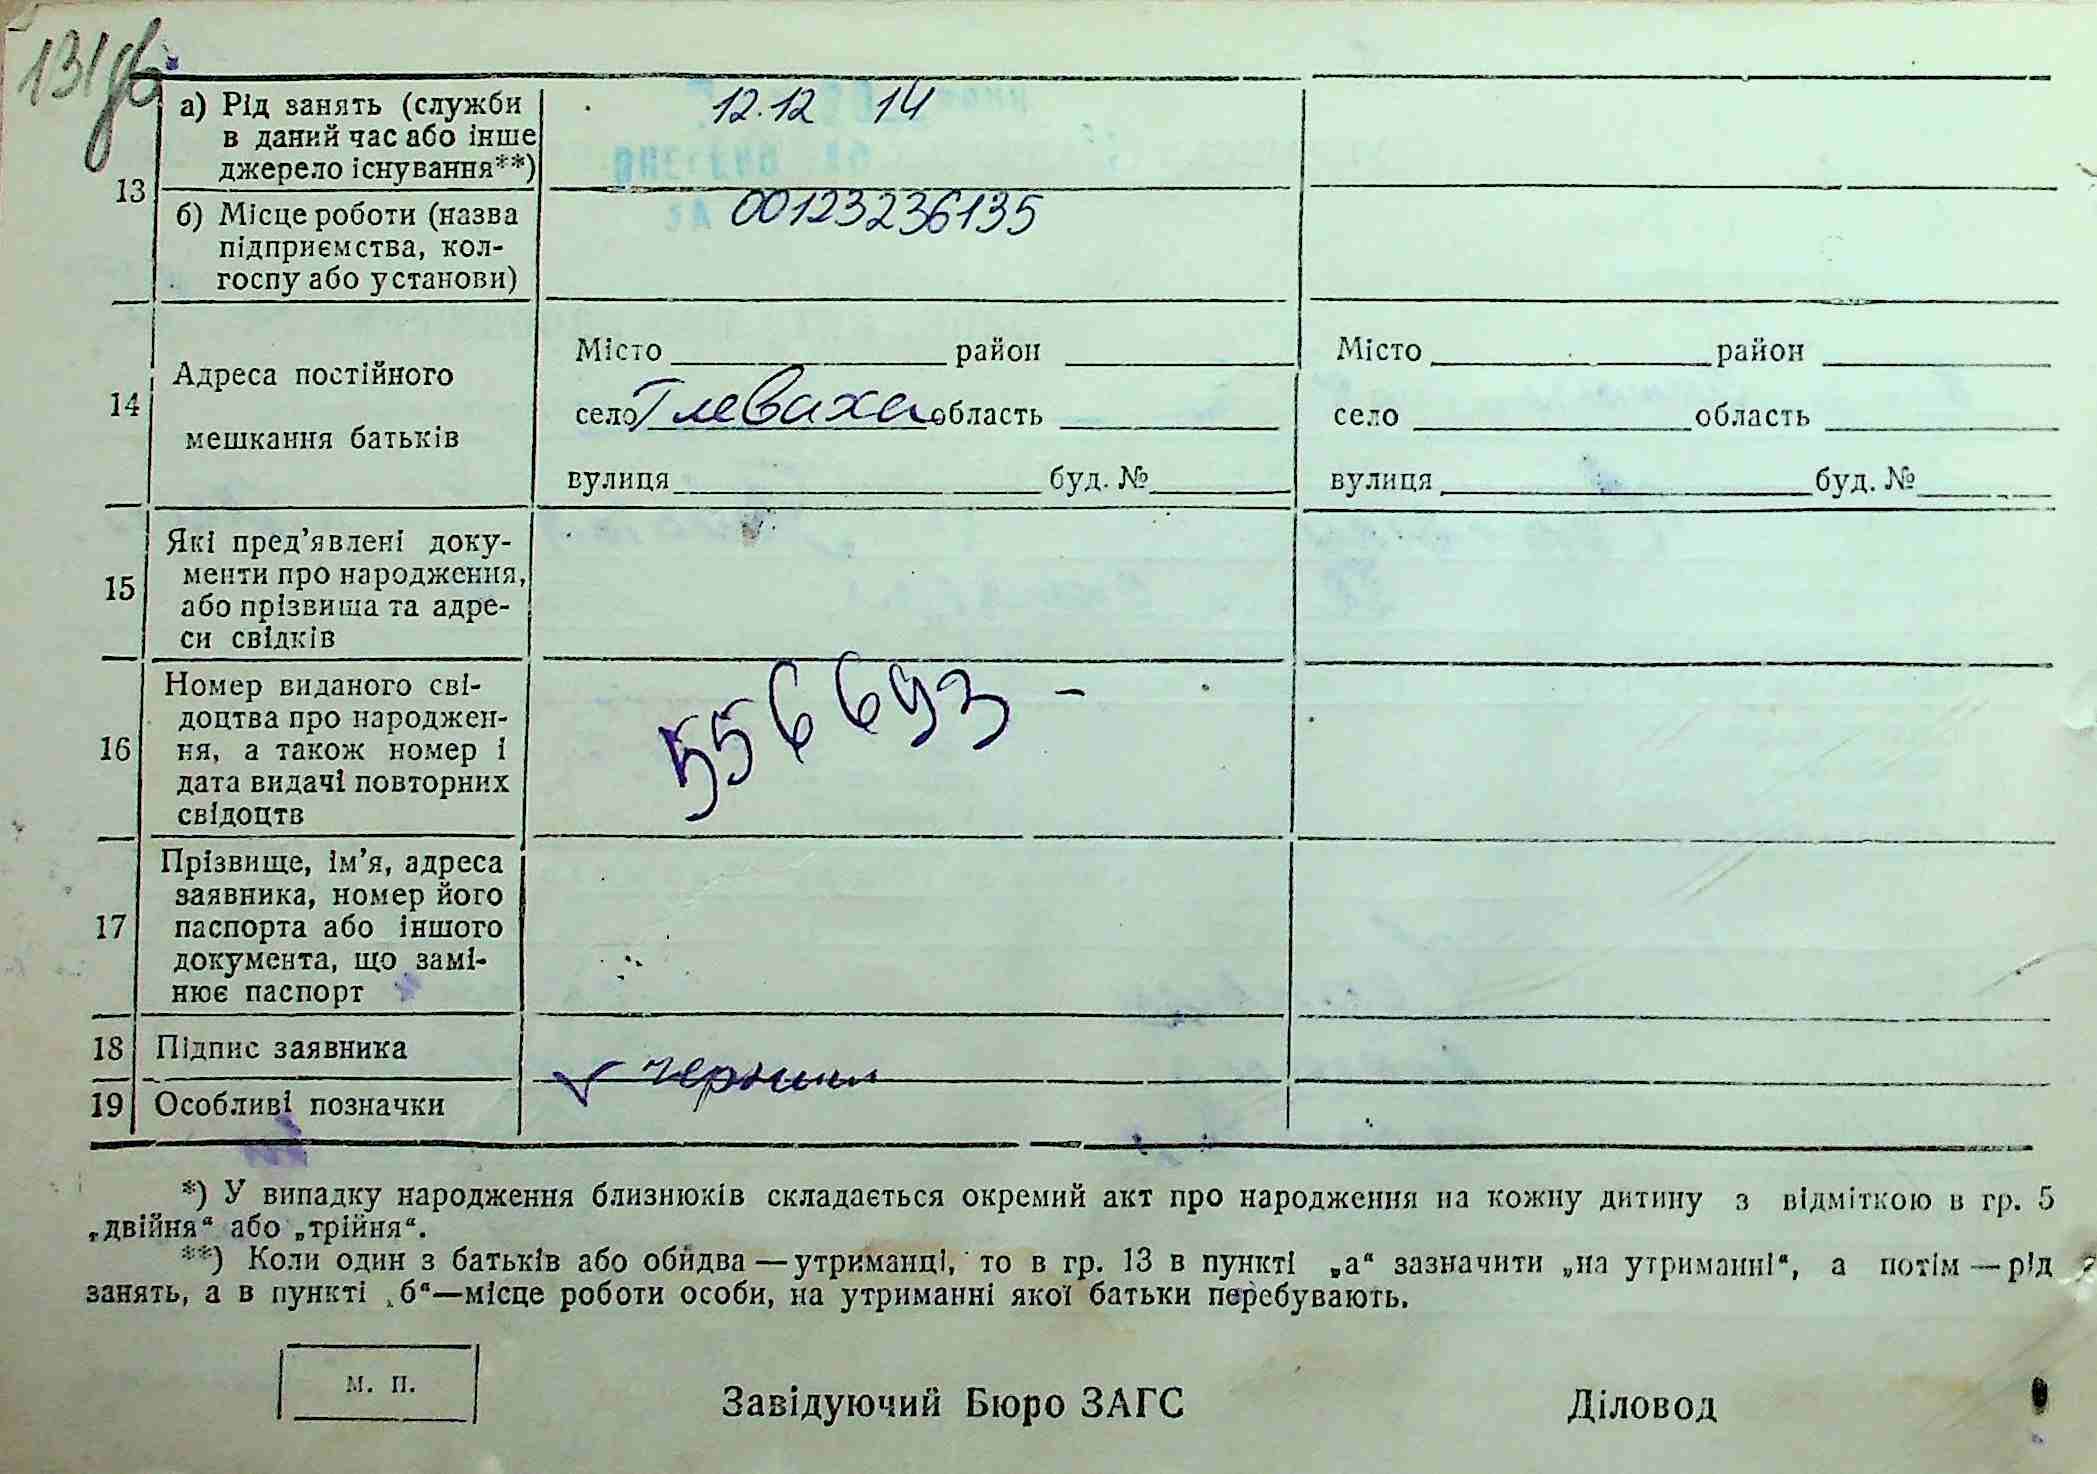 131
13
а) Рід занять (служби
в даний час або інше
джерело існування**)
12.12 14
б) Місце роботи (назва
підприємства, кол-
госпу або установи)
00123236135
14
Адреса постійного
мешкання батьків
Місто район
село Глеваха область
вулиця буд. №
Місто район
село область
вулиця буд. №
15
Які пред’явлені доку-
менти про народження,
або прізвища та адре-
си свідків
16
Номер виданого сві-
доцтва про народжен-
ня, а також номер і
дата видачі повторних
свідоцтв
556693 –
17
Прізвище, ім’я, адреса
заявника, номер його
паспорта або іншого
документа, що замі-
нює паспорт
18 Підпис заявника
19 Особливі позначки
*) У випадку народження близнюків складається окремий акт про народження на кожну дитину з відміткою в гр. 5
„двійня“ або „трійня“.
**) Коли один з батьків або обидва — утриманці, то в гр. 13 в пункті „а“ зазначити „на утриманні“, а потім — рід
занять, а в пункті „б“—місце роботи особи, на утриманні якої батьки перебувають.
м. п.
Завідуючий Бюро ЗАГС
Діловод